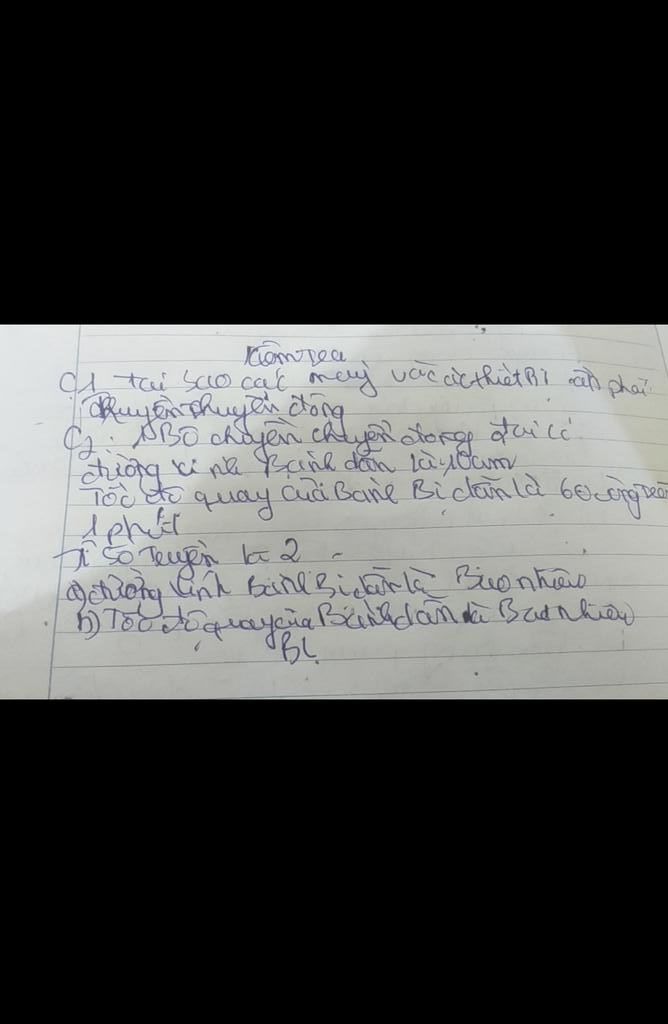 Kiểm tra
C1 tại sao các máy và các thiết Bị cần phải
truyền chuyển động
C2. Bộ chuyền chuyển động đai có
đường kính Bánh dẫn là 10cm
Tốc độ quay của Bánh Bị dẫn là 60 vòng trên
1 phút
Tỉ số truyền là 2
a) đường kính Bánh Bị dẫn là Bao nhiêu
b) Tốc độ quay của Bánh dẫn là Bao nhiêu
BL